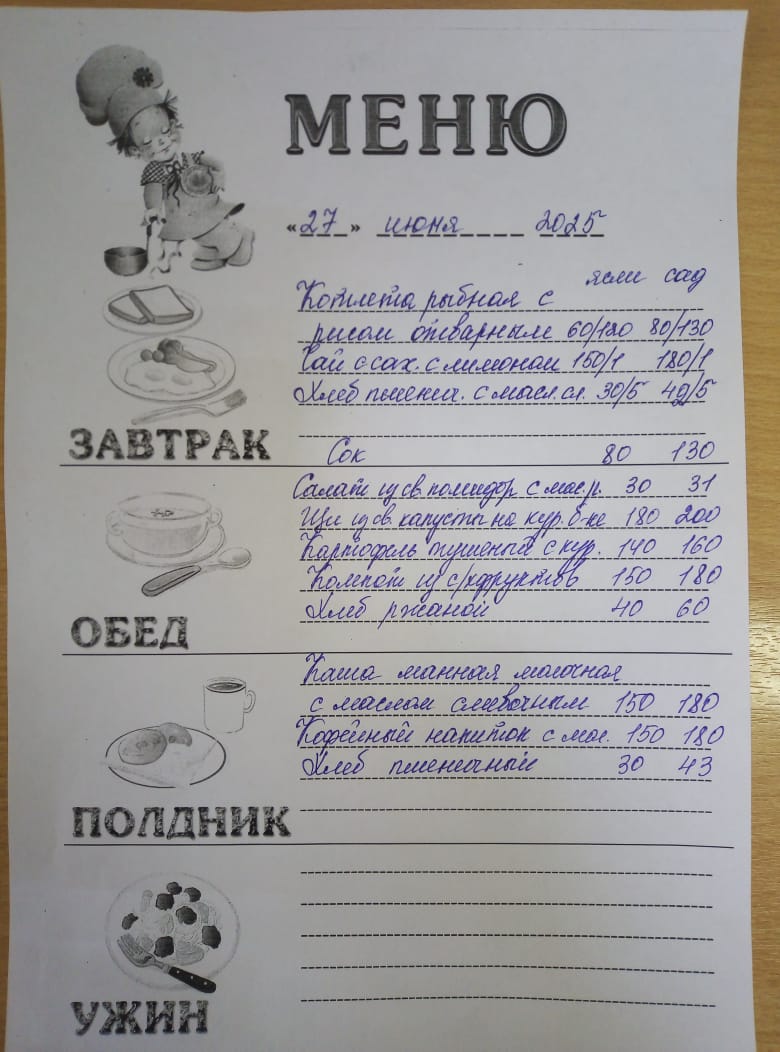 МЕНЮ
«27» июня 2025
ясли сад
Котлета рыбная с
рисом отварным 60/120 80/130
Чай с сах. с лимоном 150/1 180/1
Хлеб пшенич. с масл.сл. 30/5 42/5
ЗАВТРАК
Сок 80 130
Салат из св. помидор с мас.р. 30 31
Щи из св. капусты на кур. б-не 180 200
Картофель тушеный с кур. 140 160
Компот из с/хфруктов 150 180
Хлеб ржаной 40 60
ОБЕД
Каша манная молочная
с маслом сливочным 150 180
Кофейный напиток с мол. 150 180
Хлеб пшеничный 30 43
ПОЛДНИК
УЖИН